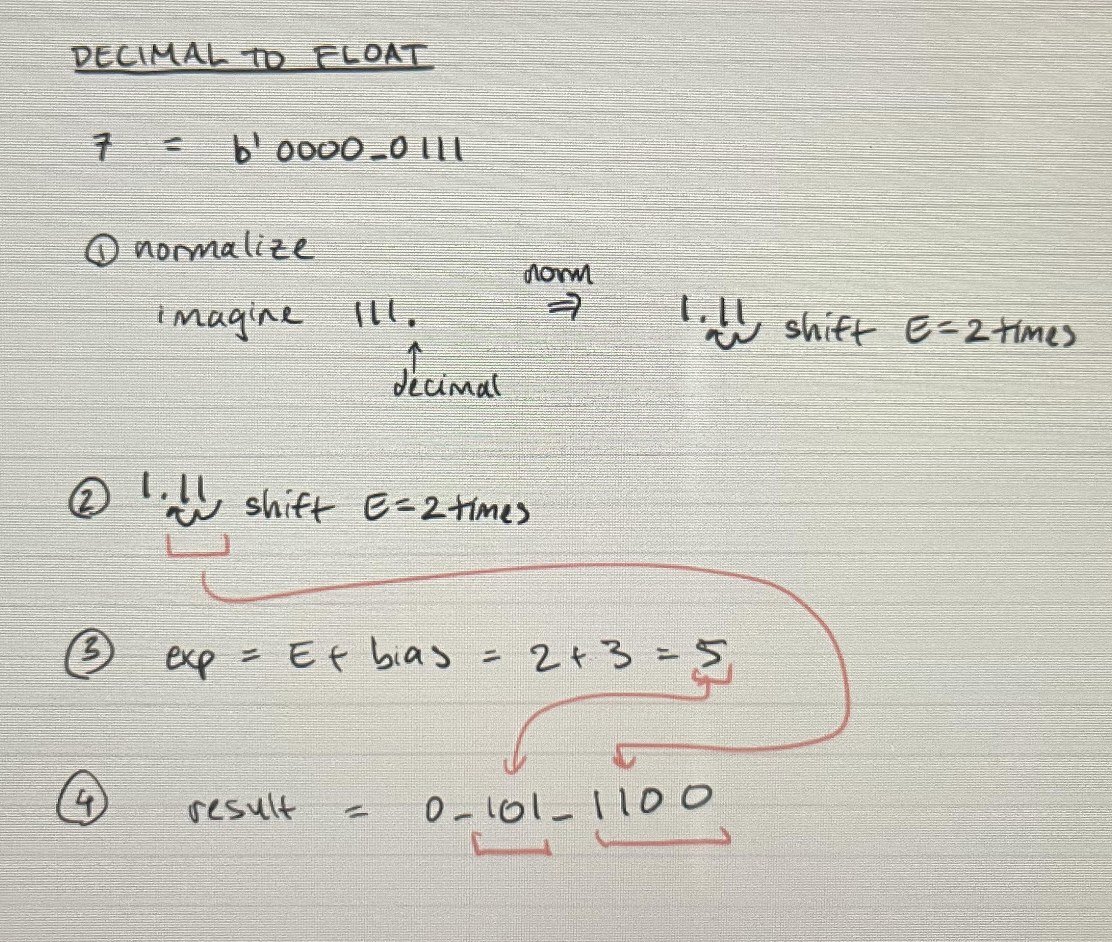 DECIMAL TO FLOAT
7 = b'0000_0111
① normalize
norm
imagine 111. ⇒ 1.11 shift E=2 times
↑
decimal
② 1.11 shift E=2 times
③ exp = E + bias = 2 + 3 = 5
④ result = 0_101_1100